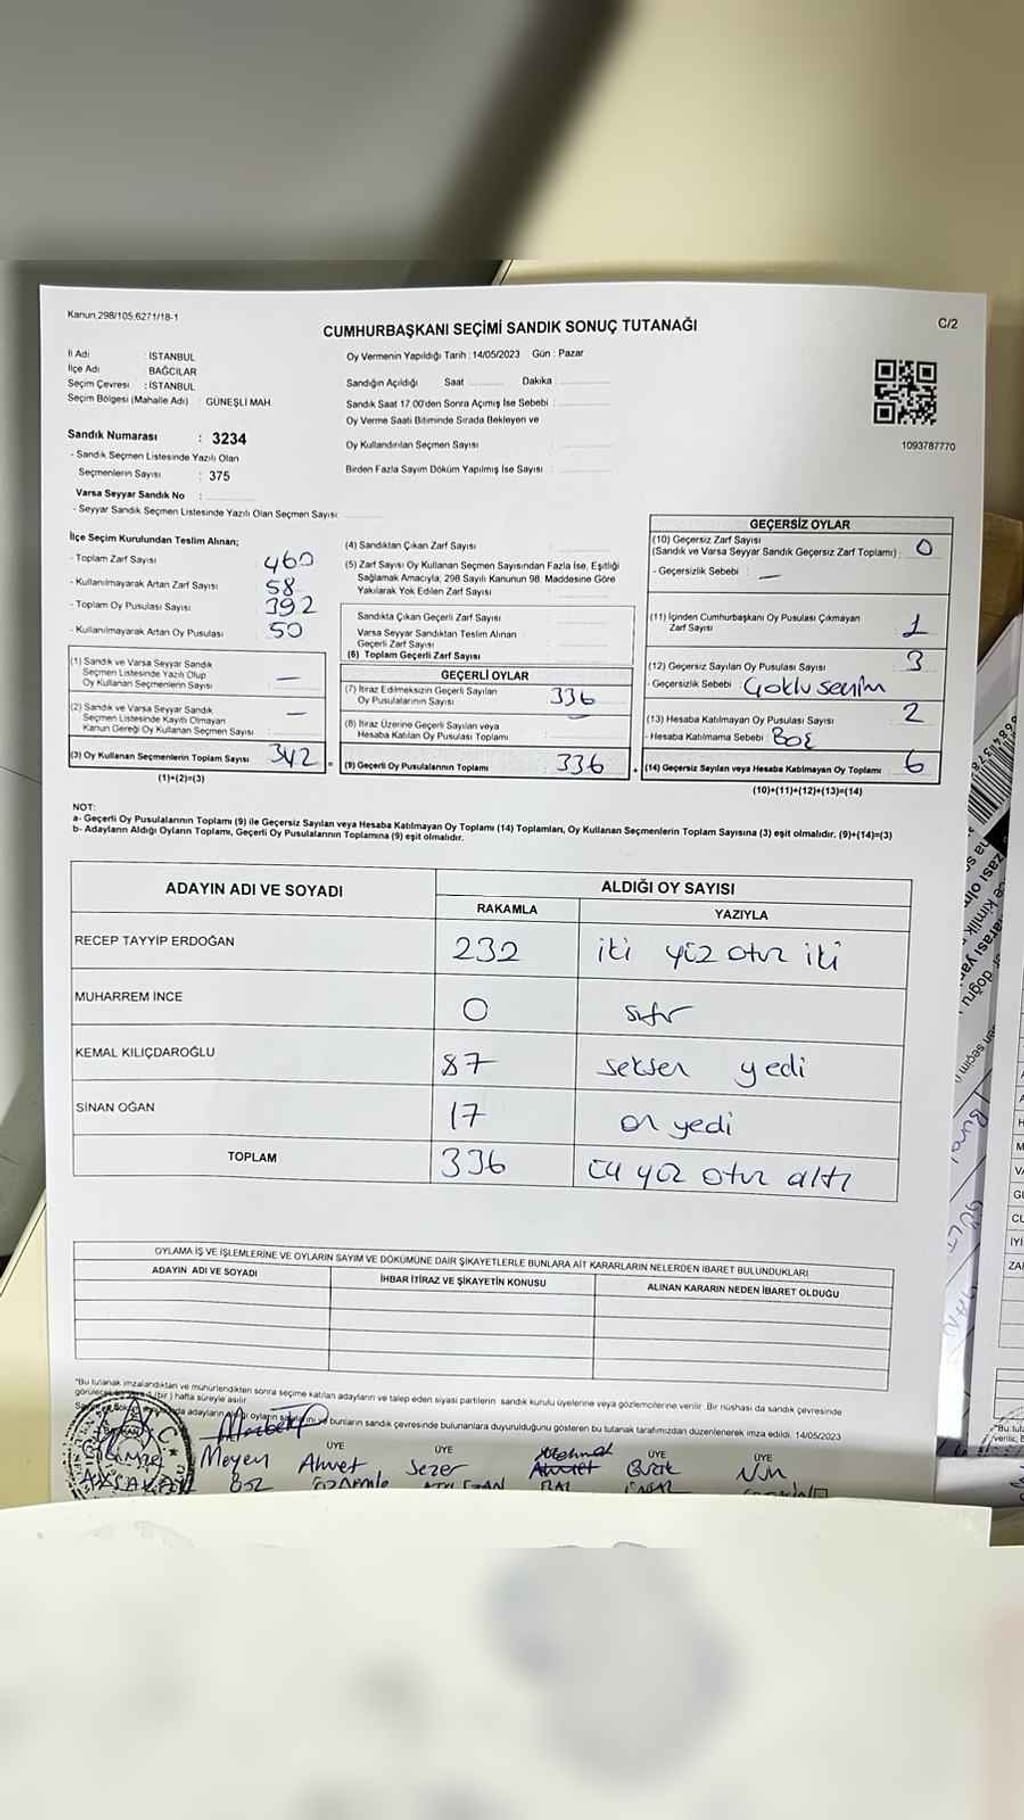 Kanun 298/105,6271/18-1
C/2
CUMHURBAŞKANI SEÇİMİ SANDIK SONUÇ TUTANAĞI
İl Adı : İSTANBUL
İlçe Adı : BAĞCILAR
Seçim Çevresi : İSTANBUL
Seçim Bölgesi (Mahalle Adı) : GÜNEŞLİ MAH.
Sandık Numarası : 3234
- Sandık Seçmen Listesinde Yazılı Olan
Seçmenlerin Sayısı : 375
Varsa Seyyar Sandık No :
- Seyyar Sandık Seçmen Listesinde Yazılı Olan Seçmen Sayısı
Oy Vermenin Yapıldığı Tarih : 14/05/2023 Gün : Pazar
Sandığın Açıldığı Saat Dakika
Sandık Saat 17.00'den Sonra Açımış İse Sebebi :
Oy Verme Saati Bitiminde Sırada Bekleyen ve
Oy Kullandırılan Seçmen Sayısı
Birden Fazla Sayım Döküm Yapılmış İse Sayısı
1093787770
İlçe Seçim Kurulundan Teslim Alınan;
- Toplam Zarf Sayısı 460
- Kullanılmayarak Artan Zarf Sayısı 58
- Toplam Oy Pusulası Sayısı 392
- Kullanılmayarak Artan Oy Pusulası 50
(1) Sandık ve Varsa Seyyar Sandık
Seçmen Listesinde Yazılı Olup
Oy Kullanan Seçmenlerin Sayısı —
(2) Sandık ve Varsa Seyyar Sandık
Seçmen Listesinde Kayıtlı Olmayan
Kanun Gereği Oy Kullanan Seçmen Sayısı —
(3) Oy Kullanan Seçmenlerin Toplam Sayısı 342
(1)+(2)=(3)
(4) Sandıktan Çıkan Zarf Sayısı
(5) Zarf Sayısı Oy Kullanan Seçmen Sayısından Fazla İse, Eşitliği
Sağlamak Amacıyla, 298 Sayılı Kanunun 98. Maddesine Göre
Yakılarak Yok Edilen Zarf Sayısı
Sandıkta Çıkan Geçerli Zarf Sayısı
Varsa Seyyar Sandıktan Teslim Alınan
Geçerli Zarf Sayısı
(6) Toplam Geçerli Zarf Sayısı
GEÇERLİ OYLAR
(7) İtiraz Edilmeksizin Geçerli Sayılan
Oy Pusulalarının Sayısı 336
(8) İtiraz Üzerine Geçerli Sayılan veya
Hesaba Katılan Oy Pusulası Toplamı
= (9) Geçerli Oy Pusulalarının Toplamı 336
GEÇERSİZ OYLAR
(10) Geçersiz Zarf Sayısı
(Sandık ve Varsa Seyyar Sandık Geçersiz Zarf Toplamı) : 0
- Geçersizlik Sebebi : —
(11) İçinden Cumhurbaşkanı Oy Pusulası Çıkmayan
Zarf Sayısı 1
(12) Geçersiz Sayılan Oy Pusulası Sayısı 3
- Geçersizlik Sebebi : Çoklu seçim
(13) Hesaba Katılmayan Oy Pusulası Sayısı 2
- Hesaba Katılmama Sebebi : BOŞ
+ (14) Geçersiz Sayılan veya Hesaba Katılmayan Oy Toplamı 6
(10)+(11)+(12)+(13)=(14)
NOT:
a- Geçerli Oy Pusulalarının Toplamı (9) ile Geçersiz Sayılan veya Hesaba Katılmayan Oy Toplamı (14) Toplamları, Oy Kullanan Seçmenlerin Toplam Sayısına (3) eşit olmalıdır. (9)+(14)=(3)
b- Adayların Aldığı Oyların Toplamı, Geçerli Oy Pusulalarının Toplamına (9) eşit olmalıdır.
ADAYIN ADI VE SOYADI
ALDIĞI OY SAYISI
RAKAMLA YAZIYLA
RECEP TAYYİP ERDOĞAN 232 iki yüz otuz iki
MUHARREM İNCE 0 sıfır
KEMAL KILIÇDAROĞLU 87 seksen yedi
SİNAN OĞAN 17 on yedi
TOPLAM 336 üç yüz otuz altı
OYLAMA İŞ VE İŞLEMLERİNE VE OYLARIN SAYIM VE DÖKÜMÜNE DAİR ŞİKAYETLERLE BUNLARA AİT KARARLARIN NELERDEN İBARET BULUNDUKLARI
ADAYIN ADI VE SOYADI İHBAR İTİRAZ VE ŞİKAYETİN KONUSU ALINAN KARARIN NEDEN İBARET OLDUĞU
"Bu tutanak imzalandıktan ve mühürlendikten sonra seçime katılan adayların ve talep eden siyasi partilerin sandık kurulu üyelerine veya gözlemcilerine verilir. Bir nüshası da sandık çevresinde
(bir) hafta süreyle asılır
adayların aldığı oyların sayısını ve bunların sandık çevresinde bulunanlara duyurulduğunu gösteren bu tutanak tarafımızdan düzenlenerek imza edildi. 14/05/2023
ÜYE ÜYE ÜYE ÜYE
Ahmet Sezer Ahmet Burak